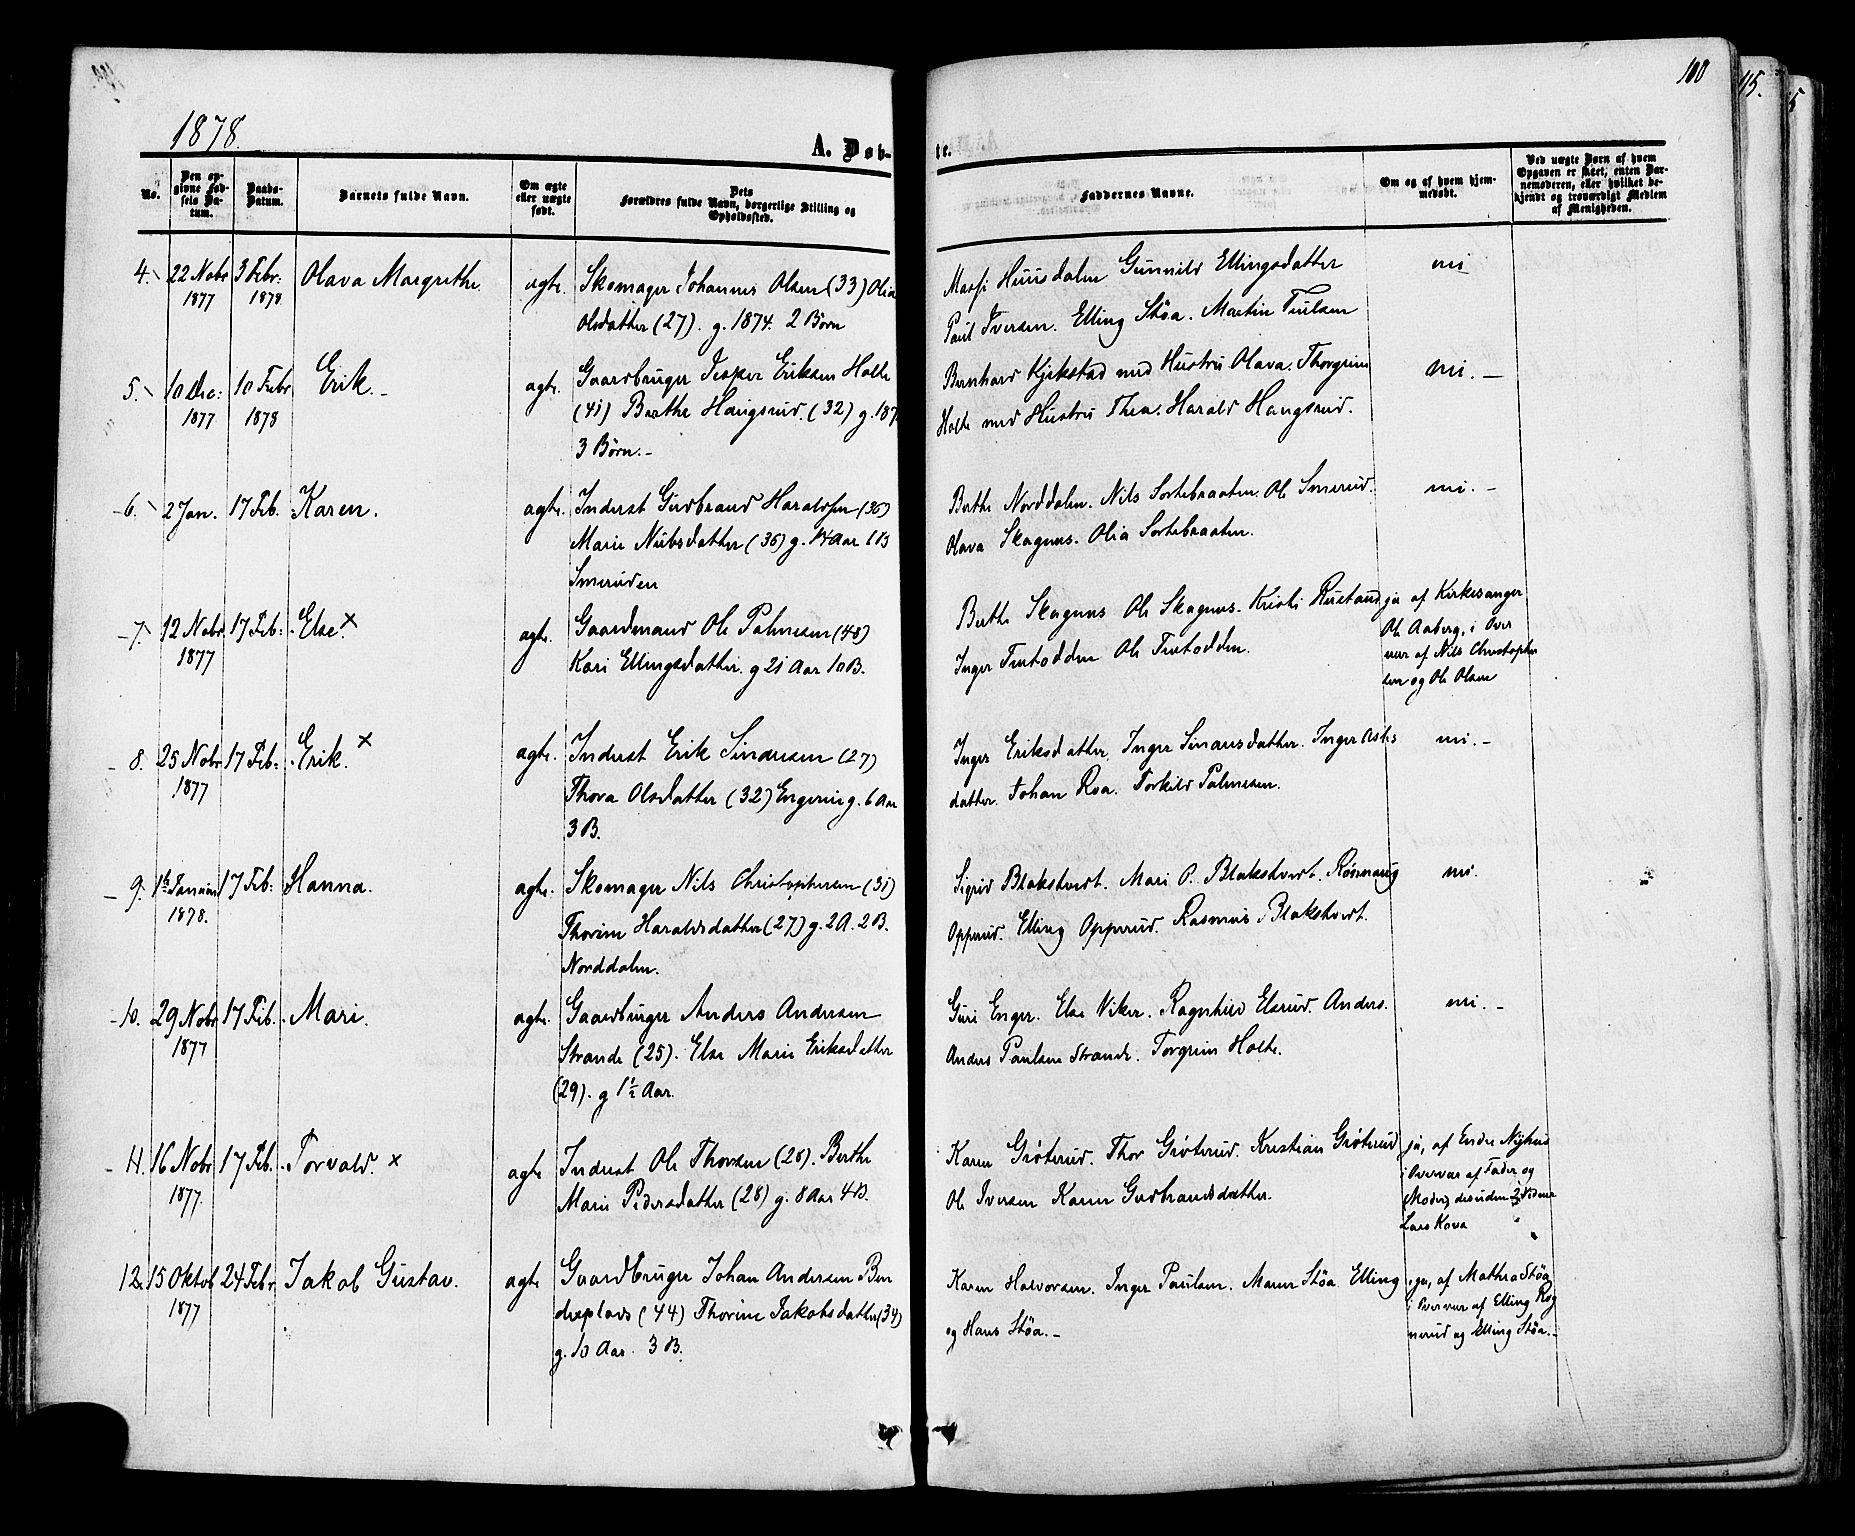 100
115.
5
1878.
A. Døb-
te.
No.
Den op-
givne Fød-
sels Da-
tum.
Daabs-
Datum.
Barnets fulde Navn.
Om ægte
eller uægte
født.
Dets
Forældres fulde Navn, borgerlige Stilling og
Opholdssted.
Faddernes Navne.
Om og af hvem hjem-
medøbt.
Ved uægte Børn af hvem
Opgaven er skeet, enten Bar-
nemoderen, eller hvilket be-
kjendt og troværdigt Medlem
af Menigheden.
4. 22 Nobr 3 Febr: Olava Margrethe. ægte. Skomager Johannes Olsen (33) Olia
1877 1878
Olsdatter (27). g. 1874. 2 Børn
Huusdalen Gunnild Ellingsdatter nei
Paul Iversen. Elling Stöa. Martin
5. 10 Dec: 10 Febr Erik. ægte. Gaardbruger Jesper Eriksen Holte
1877 1878
(41) Berthe Haugsrud. (32) g. 187
3 Børn.
Bernhard Kjekstad med Hustru Olava. Thorgrim nei.
Holte med Hustru Thea. Harald Haugsrud.
6. 2 Jan. 17 Feb. Karen. ægte. Inderst Gudbrand Haraldsen (36)
Marie Nubsdatter (36) g. 14 Aar 6 B
Smeruden
Berthe Norddalen. Nils Sortebraaten. Ole Smerud. nei.
Olava Skagnæs. Olia Sortebraaten.
7. 12 Nobr 17 Feb: Else. x ægte. Gaardmand Ole Palmesen (48)
1877
Kari Ellingsdatter. g 21 Aar 10 B.
Berthe Skagnæs Ole Skagnæs. Kristi Rustand ja af Kirkesanger
Inger Tretodden Ole Tretodden.
Ole Aaberg, i Over
vær af Nils Christopher
sen og Ole Olsen
8. 25 Nobr 17 Feb: Erik. x ægte. Inderst Erik Sindresen (27)
1877
Thora Olsdatter (32) Engerin g. 6 Aar
3 B.
Inger Eriksdatter, Inger Sinansdatter. Inger Asles nei.
datter. Johan Roa. Torkild Palmesen.
9. Januar 17 Feb: Hanna. ægte. Skomager Nils Christophersen (31)
1878.
Thorine Haraldsdatter (27) g. 2 A. 2 B.
Norddalen.
Sigrid Blakstvedt. Mari P. Blakstvedt. Rønnaug nei.
Opperud. Elling Opperud. Rasmus Blakstvedt.
10. 29 Nobr 17 Feb. Mari. ægte. Gaardbruger Anders Andersen
1877
Strande (25). Else Marie Eriksdatter
(29). g 1½ Aar.
Guri Enger. Else Viker. Ragnhild Elsrud. Anders. nei.
Anders Paulsen Strande. Torgrim Holte.
11. 16 Nobr 17 Feb. Torvald. x ægte Inderst Ole Thorsen (28). Berthe
1877.
Marie Pedersdatter (28) g. 8 Aar 4 B.
Karen Grøterud. Thor Grøterud. Kristian Grøterud ja, af Endre Nyhus
Ole Iversen Karen Gudbrandsdatter.
i Overvær af Fader og
(Moder) desuden 2
Lars Kova
12. 15 Oktob 24 Febr Jakob Gustav. ægte Gaardbruger Johan Andersen Ben
1877
dixplads (44) Thorine Jakobsdatter (34)
g. 10 Aar. 3 B.
Karen Halvorsen. Inger Paulsen. Maren Stöa Elling ja, af Mathea Stöa
og Hans Stöa.
i Overvær af Elling Rog
nerud og Elling Stöa.